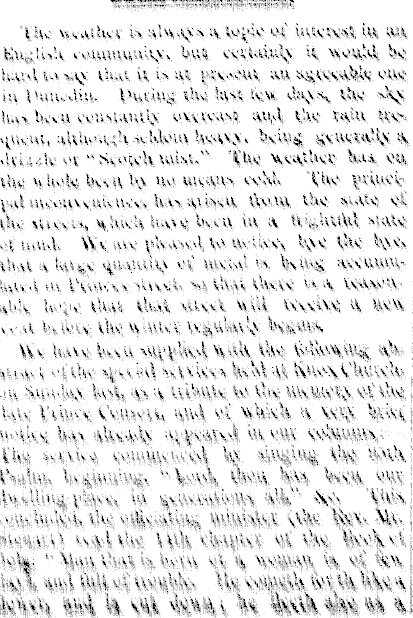 The weather is always a topic of interest in an
English community, but certainly it would be
hard to say that it is at present an agreeable one
in Dunedin. During the last few days, the sky
has been constantly overcast and the rain fre-
quent, although seldom heavy, being generally a
drizzle or "Scotch mist." The weather has on
the whole been by no means cold. The princi-
pal inconvenience, has arisen from the state of
the streets, which have been in a frightful state
of mud. We are pleased to notice, bye the bye,
that a large quantity of metal is being accumu-
lated in Princes street, so that there is a reason-
able hope that that street will receive a new
coat before the winter regularly begins.
We have been supplied with the following ab-
stract of the special services held at Knox Church,
on Sunday last, as a tribute to the memory of the
late Prince Consort, and of which a very brief
notice has already appeared in our columns:-
The service commenced by singing the 90th
Psalm, beginning, "Lord, thou hast been our
dwelling place, in generations all," &c. This
concluded, the officiating minister (the Rev. Mr.
Stuart) read the 14th chapter of the Book of
Job: "Man that is born of a woman is of few
days, and full of trouble. He cometh forth like a
flower, and is cut down; he fleeth also as a